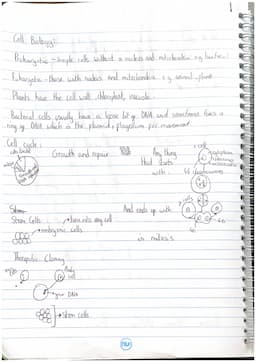 Cell Biology:
Prokaryotic - Simple cells without a nucleus and mitochondria e.g bacteria
Eukaryotic - those with nucleus and mitochondria e.g animal, plant
Plants have the cell wall, chloroplast, vacuole.
Bacterial cells usually have a loose bit of DNA and sometimes have a
ring of DNA which is the plasmid, flagellum for movement.
Cell cycle:
Growth and repair
Any thing
that starts
with: 46 chromosomes
1 cell
Stem Cells: turn into any cell
embryonic cells
And ends up with
2 cells
46
46
nucleus
Therapeutic Cloning
Body cell
your DNA
Stem cells
nu